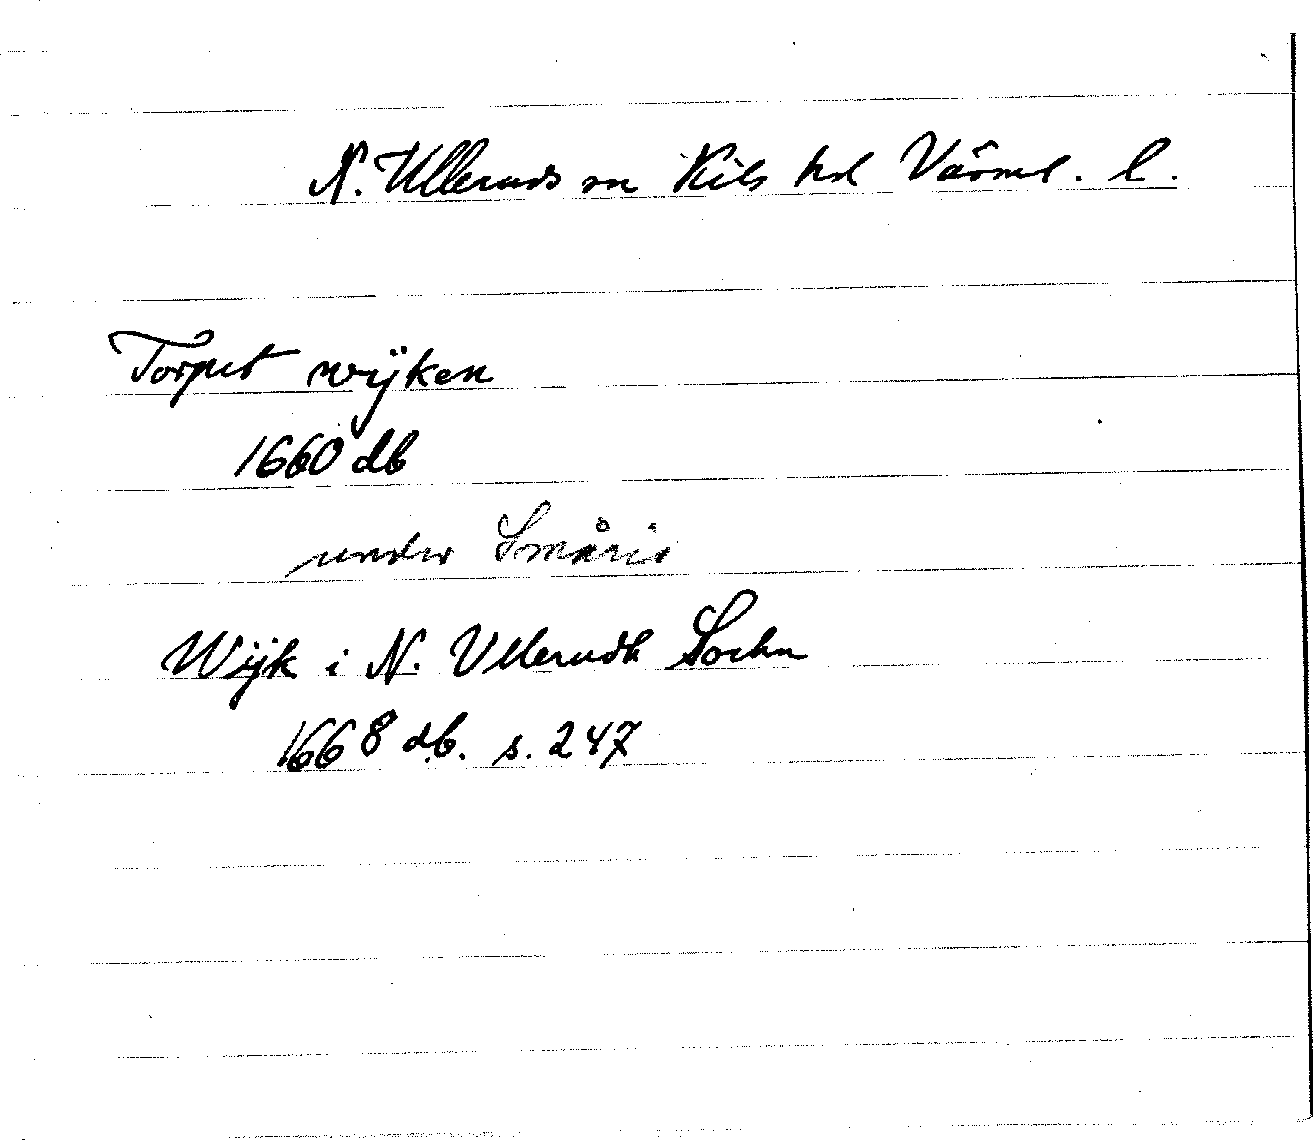 N. Ulleruds sn Kils hd Värml. l.
Torpet wijken
1660 db
under Smäris
Wijk i N. Ullerudh Sochn
1668 db. s. 247